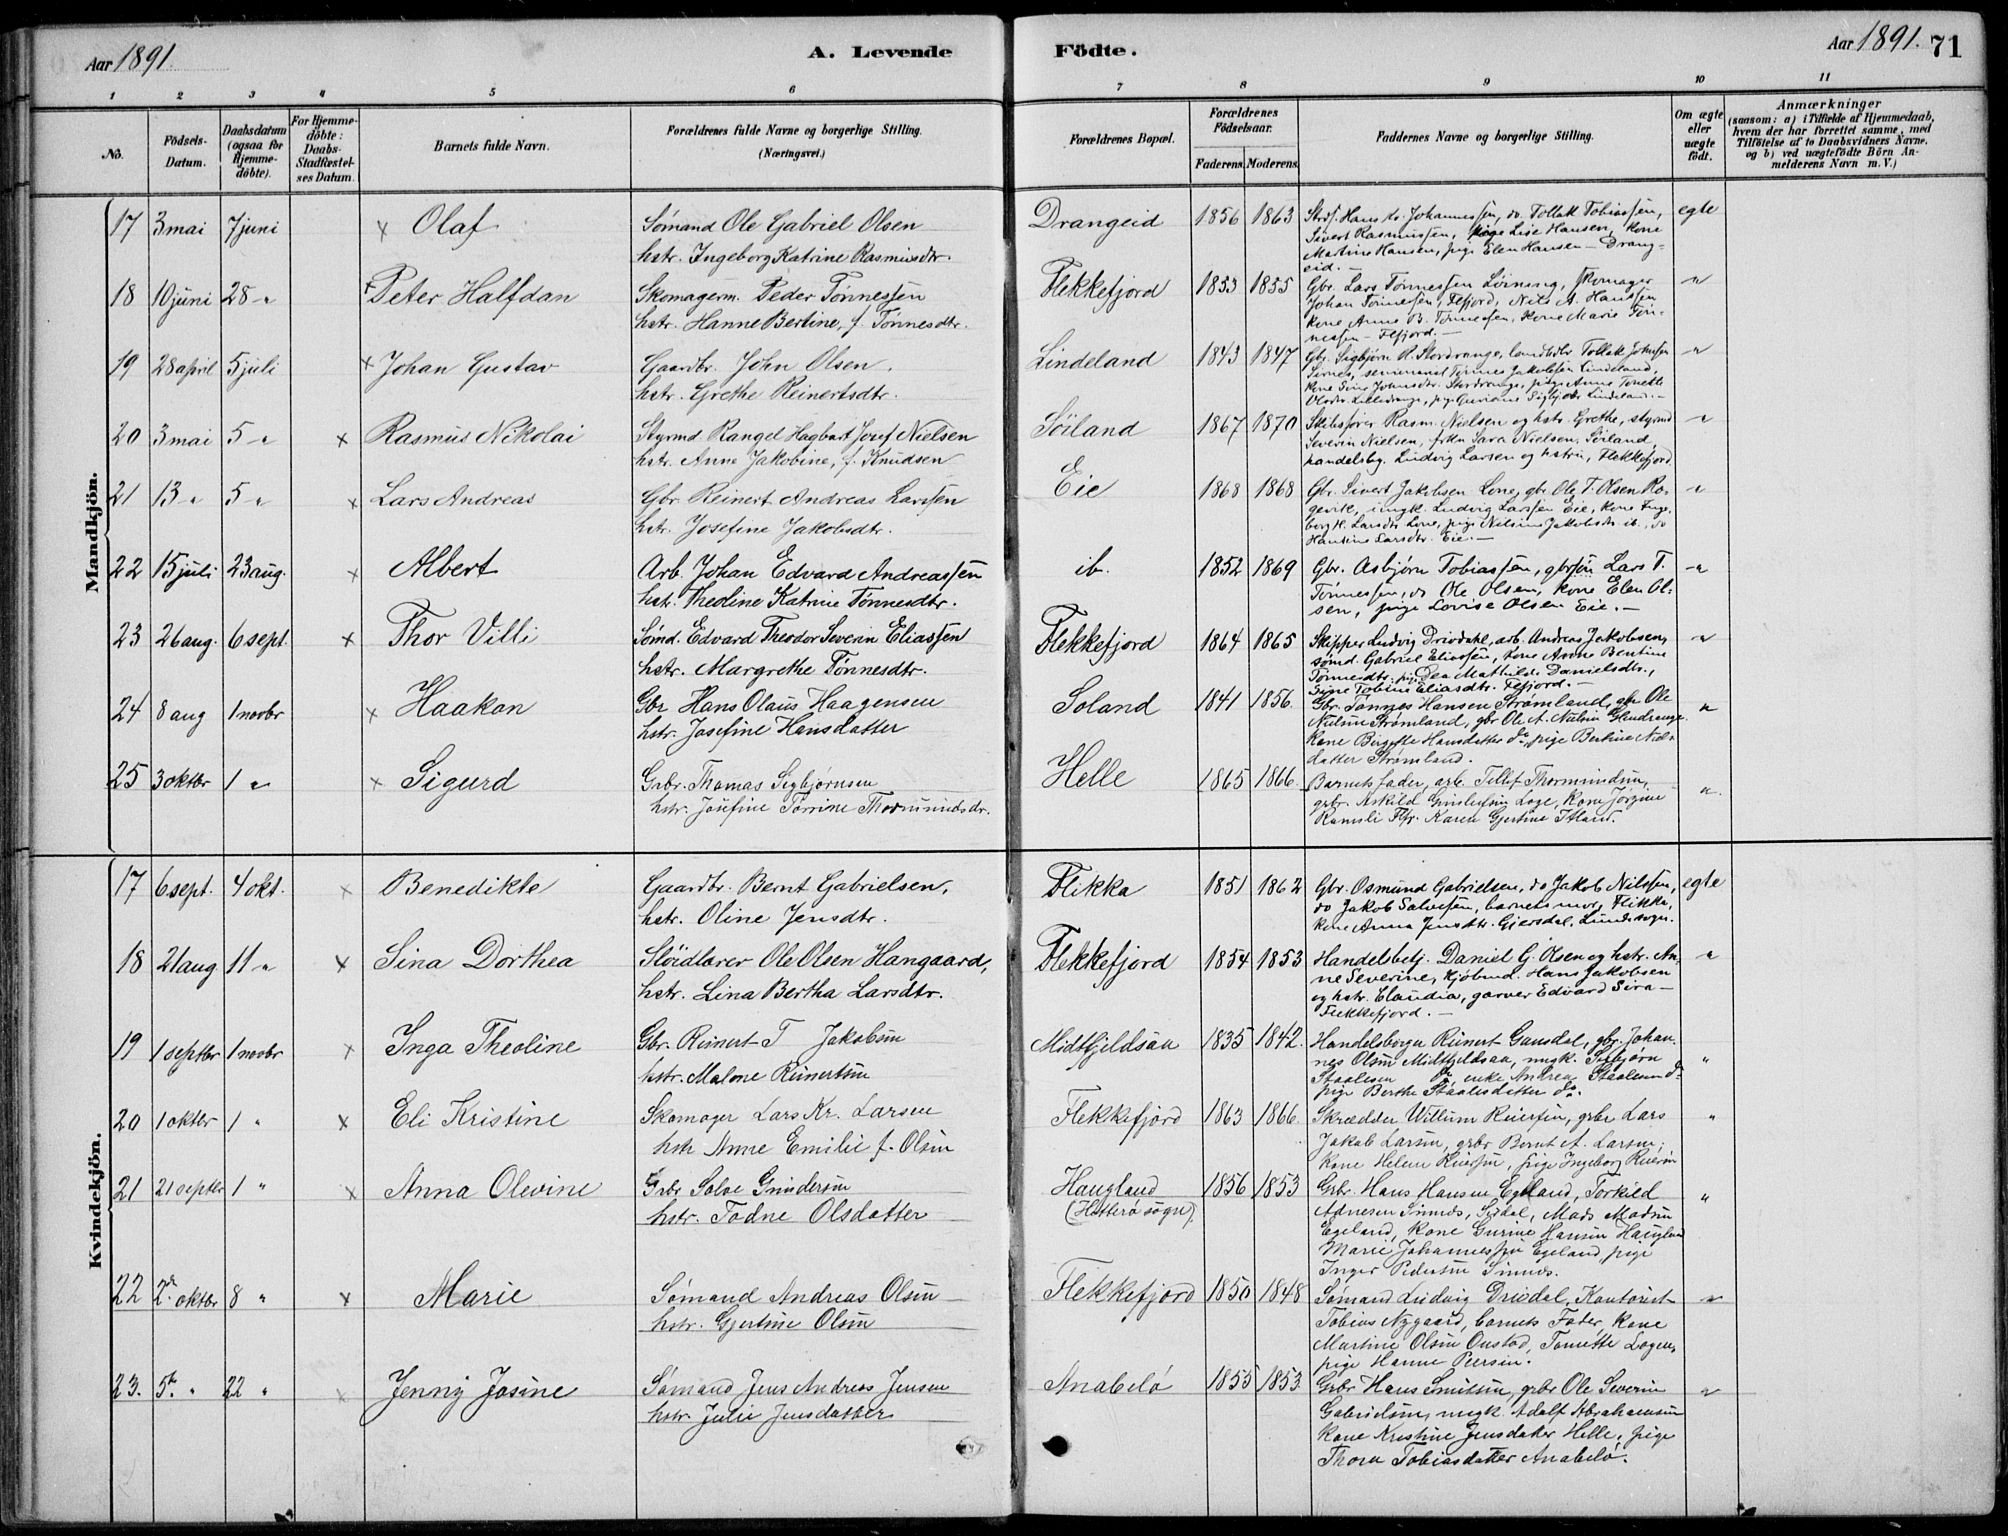 Aar 1891.
A. Levende
Födte.
Aar 1891.
71
1 2 3 4 5 6 7 8 9 10 11
No.
Födsels-Datum.
Daabsdatum (ogsaa for Hjemmedöbte).
For Hjemmedöbte: Daabs-Stadfæstelses Datum.
Barnets fulde Navn.
Forældrenes fulde Navne og borgerlige Stilling.
(Næringsvei.)
Forældrenes Bopæl.
Forældrenes Födselsaar.
Faderens. Moderens.
Faddernes Navne og borgerlige Stilling.
Om ægte eller uægte födt.
Anmærkninger
(saasom: a) i Tilfælde af Hjemmedaab, hvem der har forrettet samme, med Tilföielse af to Daabsvidners Navne, og b) ved uægtefödte Börn Anmelderens Navn m. V.)
Mandkjön.
17 3 mai 7 juni x Olaf
Sømand Ole Gabriel Olsen
hstr. Ingeborg Katrine Rasmusdtr.
Drangeid 1856 1863
Johannessen, do. Tollak Tobiassen,
Sivert Rasmussen, pige Lise Hansen, kone
Martine Hansen, pige Elen Hansen – Drang-
eid. –
egte
18 10 juni 28 -"- x Peter Halfdan
Skomagerm. Peder Tønnessen
hstr. Hanne Bertine, f. Tønnesdtr.
Flekkefjord 1853 1855
Gbr. Lars Tønnessen Lørning, skomager
Johan Tønnessen, Fefjord, Nils A. Hanssen
kone Anne B. Tønnessen, kone Marie Tøn-
nessen – Flefjord. –
-"-
19 28 april 5 juli x Johan Gustav
Gaardbr. John Olsen,
hstr. Grethe Reinertsdtr.
Lindeland 1843 1847
Gbr. Sigbjørn R. Stordrange, Tollak Johnsen
Tønnes Jakobsen Lindeland,
kone Sine Johnsdtr. Stordrange, pige Anne
Lindeland. –
-"-
20 3 mai 5 -"- x Rasmus Nikolai
Styrmd Rangel Hagbart Josef Nielsen
hstr. Anne Jakobine, f. Knudsen
Søiland 1867 1870
Skibsfører Rasm. Nielsen og hstr. Grethe, styrmd
Severin Nielsen, frkn Sara Nielsen, Søiland,
handelsbg. Ludvig Larsen og hstru, Flekkefjord
-"-
21 13 " 5 -"- x Lars Andreas
Gbr. Reinert Andreas Larssen
hstr. Josefine Jakobsdtr.
Eie 1868 1868
Gbr. Sivert Jakobsen Lone, gbr. Ole T. Olsen Ro-
gevik, ungk. Ludvig Larssen Eie, kone Inge-
borg K. Larsdtr Lone, pige Nilsine Jakobsdtr ib., do
Hantine Larsdtr. Eie. –
-"-
22 15 juli 23 aug. x Albert
Arb. Johan Edvard Andreassen
hstr. Theoline Katrine Tønnesdtr.
ib. 1852 1869
Gbr. Asbjørn Tobiassen, gbrsøn Lars T.
Tønnessen, do Ole Olsen, kone Elen Ol-
sen, pige Lovise Olsen Eie. –
-"-
23 26 aug. 6 sept. x Thor Villi
Sømd. Edvard Theodor Severin Eliassen
hstr. Margrethe Tønnesdtr.
Flekkefjord 1864 1865
Skipper Ludvig Drivdahl, arb. Andreas Jakobsen,
sømd. Gabriel Eliassen, kone Anne Bentine
Tønnesdtr. pige Dea Mathilde Danielsdtr.,
Sine Tobine Eliasdtr. Fefjord. –
"
24 8 aug 1 novbr x Haakon
Gbr Hans Olaus Haagensen
hstr. Josefine Hansdatter
Soland 1841 1856
Gbr. Tønnes Hansen Strømland, gbr Ole
Nilsen Strømland, gbr Ole A. Nilsen Hendrange.
Kone Birgitte Hansdatter do, pige Bertine Niels
datter Strømland.
"
25 3 oktbr 1 " x Sigurd
Grbr. Thomas Sigbjørnsen
hstr. Josefine Torrine Thormundsdr.
Helle 1865 1866
Barnets fader, arb. Tellef Thormundsen,
grbr. Askild Loge, Kone Jørgine
Ramsli Flfj. Karen Gjertine Itland.
"
Kvindekjön.
17 6 sept. 4 okt. x Benedikte
Gaardbr. Bernt Gabrielsen,
hstr. Oline Jensdtr.
Flikka 1851 1862
Gbr. Osmund Gabrielsen, do Jakob Nilssen,
do Jakob Salvesen, barnets mor, Flikka,
kone Anna Jensdtr. Gjersdal, Lunds sogn.
egte
18 21 aug 11 -"- x Sina Dorthea
Sløidlærer Ole Olsen Hangaard,
hstr. Lina Bertha Larsdtr.
Flekkefjord 1854 1853
Handelsbetj. Daniel G. Olsen og hstr. An-
ne Severine, kjøbmd. Hans Jakobsen
og hstr. Claudia, garver Edvard Sira –
Flekkefjord. –
"
19 1 septbr 1 novbr x Inga Theoline
Gbr. Reinert T Jakobsen
hstr. Malene Reinertsen
Midtfjeldsaa 1835 1842
Handelsborger Reinert Gausdal, gbr. Johan-
nes Olsen Midtfjeldsaa, ungk. Sigbjørn
Staalesen do, enke Andrea Staalesen do
pige Berthe Staalesdatter do.
"
20 1 oktbr 1 " x Eli Kristine
Skomager Lars Kr. Larsen
hstr Anne Emilie f. Olsen
Flekkefjord 1863 1866
Skrædder Willum Reiersen, grbr Lars
Jakob Larsen, grbr Bernt A. Larsen;
Kone Helene Reiersen, pige Ingeborg Reiersen
"
21 21 septbr 1 " x Anna Olevine
Grbr. Salve Gundersen
hstr. Todne Olsdatter
Haugland
(Hitterø sogn). 1856 1853
Grbr. Hans Hansen Egeland, Torkild
Adnesen Sinnes, Mads Madsen
Egeland, Kone Gurine Hansen Haugland
Marie Johannessen Egeland, pige
Inger Pedersen Sinnes.
"
22 2d. oktbr 8 " x Marie
Sømand Andreas Olsen
hstr. Gjertine Olsen
Flekkefjord 1850 1848
Sømand Ludvig Drivdal, Kontorist
Tobias Nygaard, barnets Fader, Kone
Martine Olsen Onstad, Tomette Logen,
pige Hanne Peersen.
"
23. 5te " 22 " x Jenny Josine
Sømand Jens Andreas Jensen
hstr. Julie Jensdatter
Anabelø 1855 1853
Grbr Hans Smitsen, grbr Ole Severin
Gabrielsen, ungk. Adolf Abrahamsen
Kone Kristine Jensdatter Helle, pige
Thora Tobiasdatter Anabelø.
"